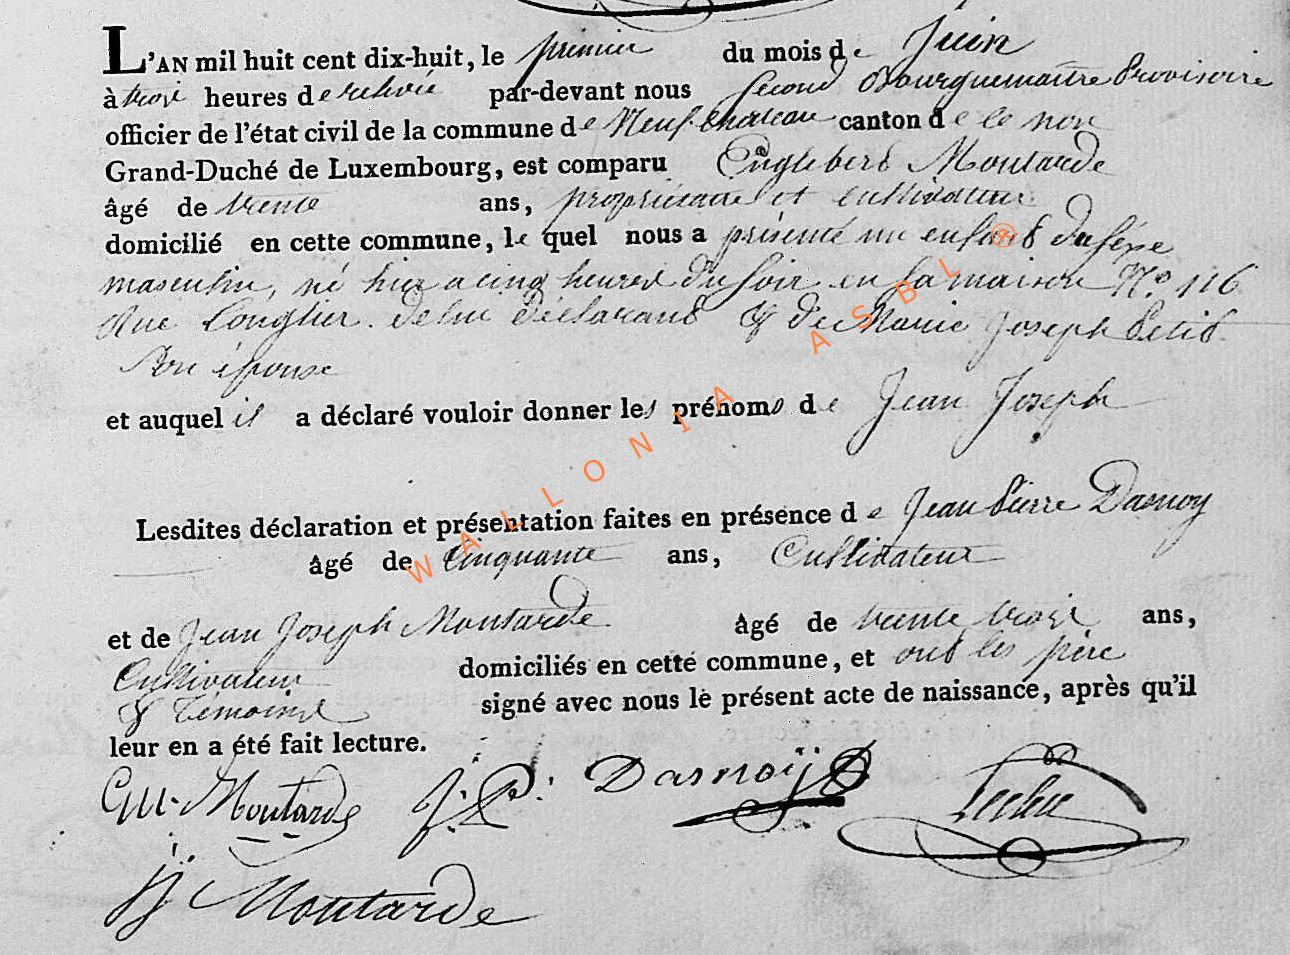 L'AN mil huit cent dix-huit, le premier du mois de Juin
à trois heures de relevée par-devant nous second Bourguemaitre Provisoire
officier de l'état civil de la commune de Neufchateau canton de ce nom
Grand-Duché de Luxembourg, est comparu Englebert Moutarde
âgé de trente ans, propriétaire et cultivateur
domicilié en cette commune, le quel nous a présenté un enfant du séxe
masculin, né hier a cinq heures du soir en sa maison N.o 116
Rue Longlier de lui déclarant & de Marie Joseph Petit
son épouse
et auquel il a déclaré vouloir donner les prénoms de Jean Joseph
Lesdites déclaration et présentation faites en présence de Jean Pierre Dasnoy
âgé de cinquante ans, Cultivateur
et de Jean Joseph Moutarde âgé de trente trois ans,
Cultivateur domiciliés en cette commune, et ont les père
& témoins signé avec nous le présent acte de naissance, après qu'il
leur en a été fait lecture.
Moutarde J: P: Dasnoÿ
JJ Moutarde
WALLONIA ASBL ®